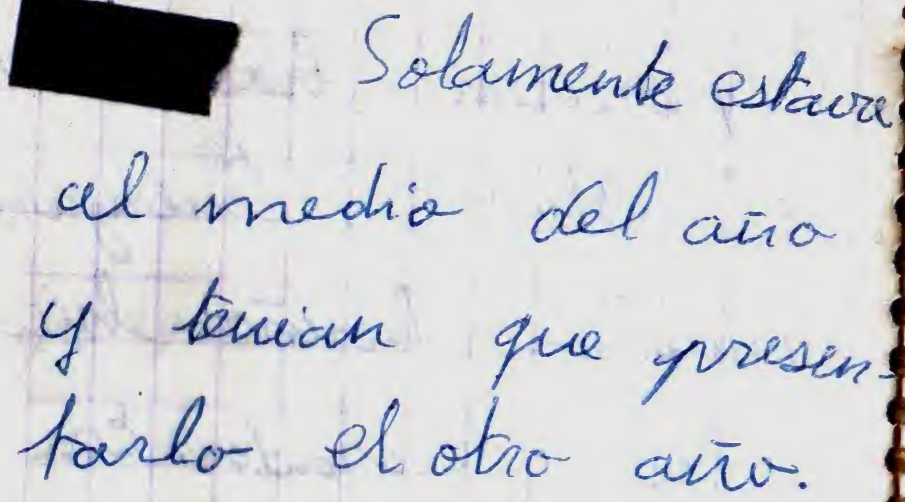 Solamente estava
al medio del año
y tenian que presen-
tarlo el otro año.